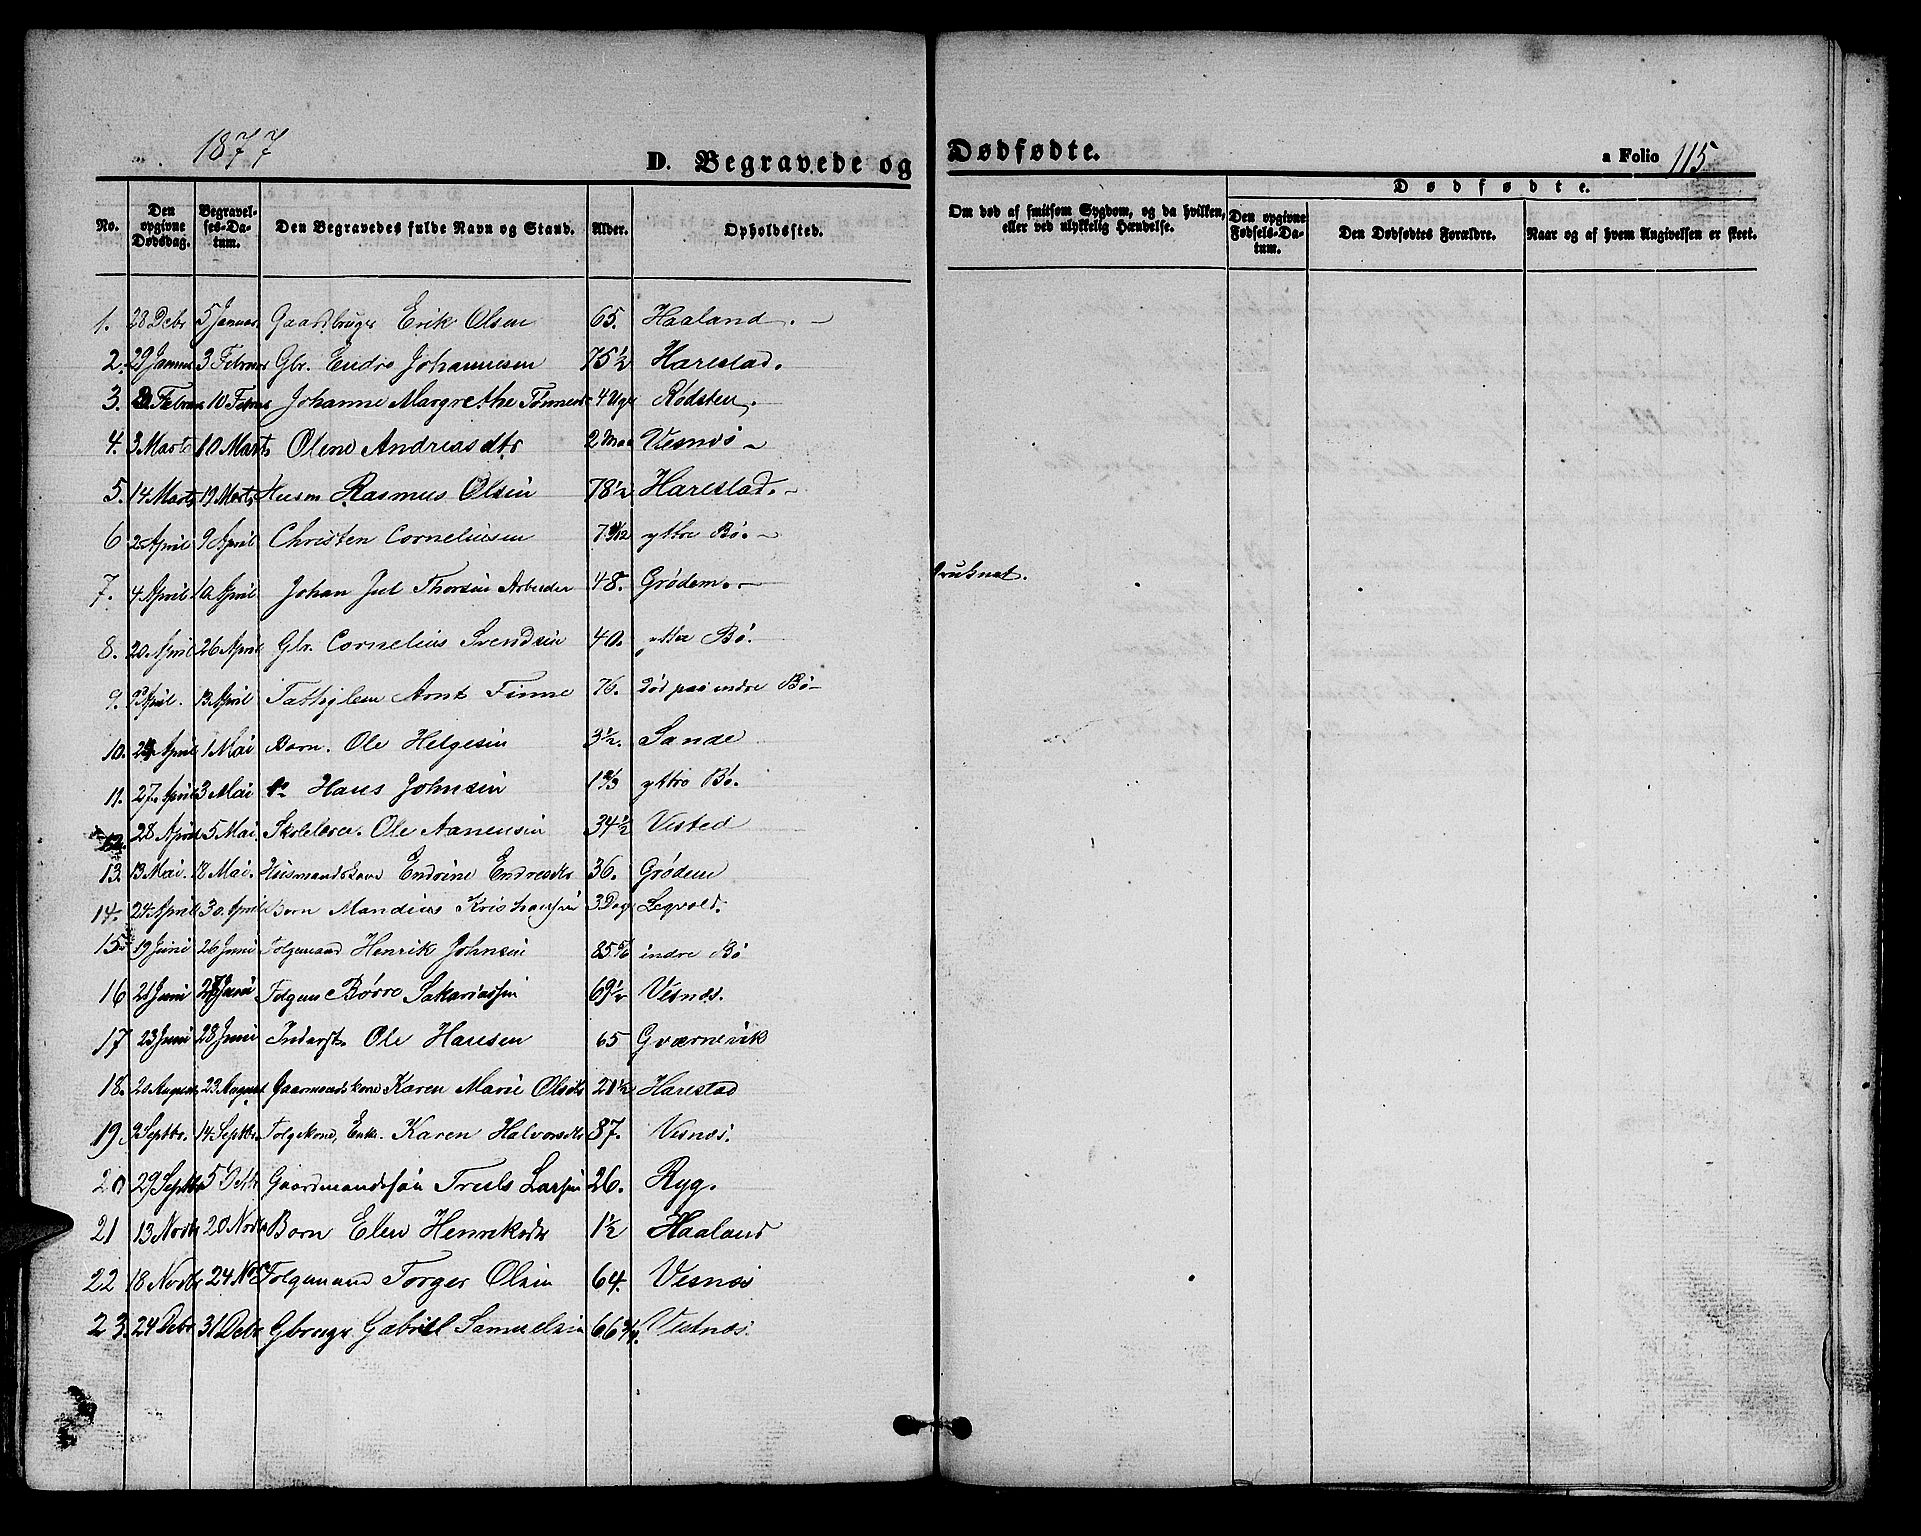 1877
D. Begravede og Dødfødte.
a Folio 115
No.
Den opgivne Dødsdag.
Begravelses-Datum.
Den Begravedes fulde Navn og Stand.
Alder.
Opholdssted.
Om død af smitsom Sygdom, og da hvilken, eller ved ulykkelig Hændelse.
Dødfødte.
Den opgivne Fødsels-Datum.
Den Dødfødtes Forældre.
Naar og af hvem Angivelsen er skeet.
1. 28 Debr 5 Januar Gaardbruger Erik Olsen 65. Haaland.
2. 29 Januar 3 Februar Gbr. Endre Johannesen 75½ Harestad.
3. Februa 10 Februa Johanne Margrethe 4 Uger Rødsten.
4. 3 Marts 10 Marts Olene Andreasdtr 2 Maa Vesnæs
5. 14 Marts 19 Marts Husm Rasmus Olsen 78½ Harestad.
6 2 April 9 April Christen Corneliusen ytre Bø.
7. 4 April 10 April Johan Jul Thorsen Arbeider 48. Grødem. druknet.
8. 20 April 26 April Gbr. Cornelius Svendsen 40. ytre Bø.
9. April. 13 April Arnt Finne 76. død paa indre Bø
10. April 1 Mai Barn. Ole Helgesen 3½. Sande
11. 27 April 3 Mai do Hans Johnsen 1⅔ ytre Bø.
12. 28 April 5 Mai Skolelærer. Ole Aanensen 34½ Visted
13. 13 Mai. 18 Mai. Husmandskone Endrine Endresdtr 36. Grødem
14. 24 April 30 April Barn Mandius Kristiansen 3 Dag Legvold.
15. 19 Juni 26 Juni Folgemand Henrik Johnsen 85 indre Bø
16 21 Juni Juni Folgem Børre Sakariassen 69½ Vesnæs.
17 23 Juni 28 Juni Inderst. Ole Hansen 65 Gværnevik
18. 20 August 23 August Gaarmandskone Karen Marie Olsdtr 21½ Harestad
19. 9 Septbr. 14 Septbr. Folgekone, Enke. Karen Halvorsdtr 87. Vesnæs.
20 29 Septbr 5 Octbr Gaardmandssøn Truls Larsen 26. Ryg.
21 13 Novbr 20 Novbr Barn Elen Henriksdtr 1½ Haaland
22 18 Novbr 24 Nov Folgemand Torger Olsen 64. Vesnæs
23. 24 Debr 31 Debr Gbruger Gabriel Samuelsen 66 Vestnæs.